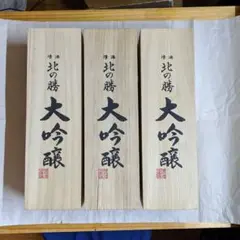 清酒
北の勝
大吟醸
清酒
北の勝
大吟醸
清酒
北の勝
大吟醸